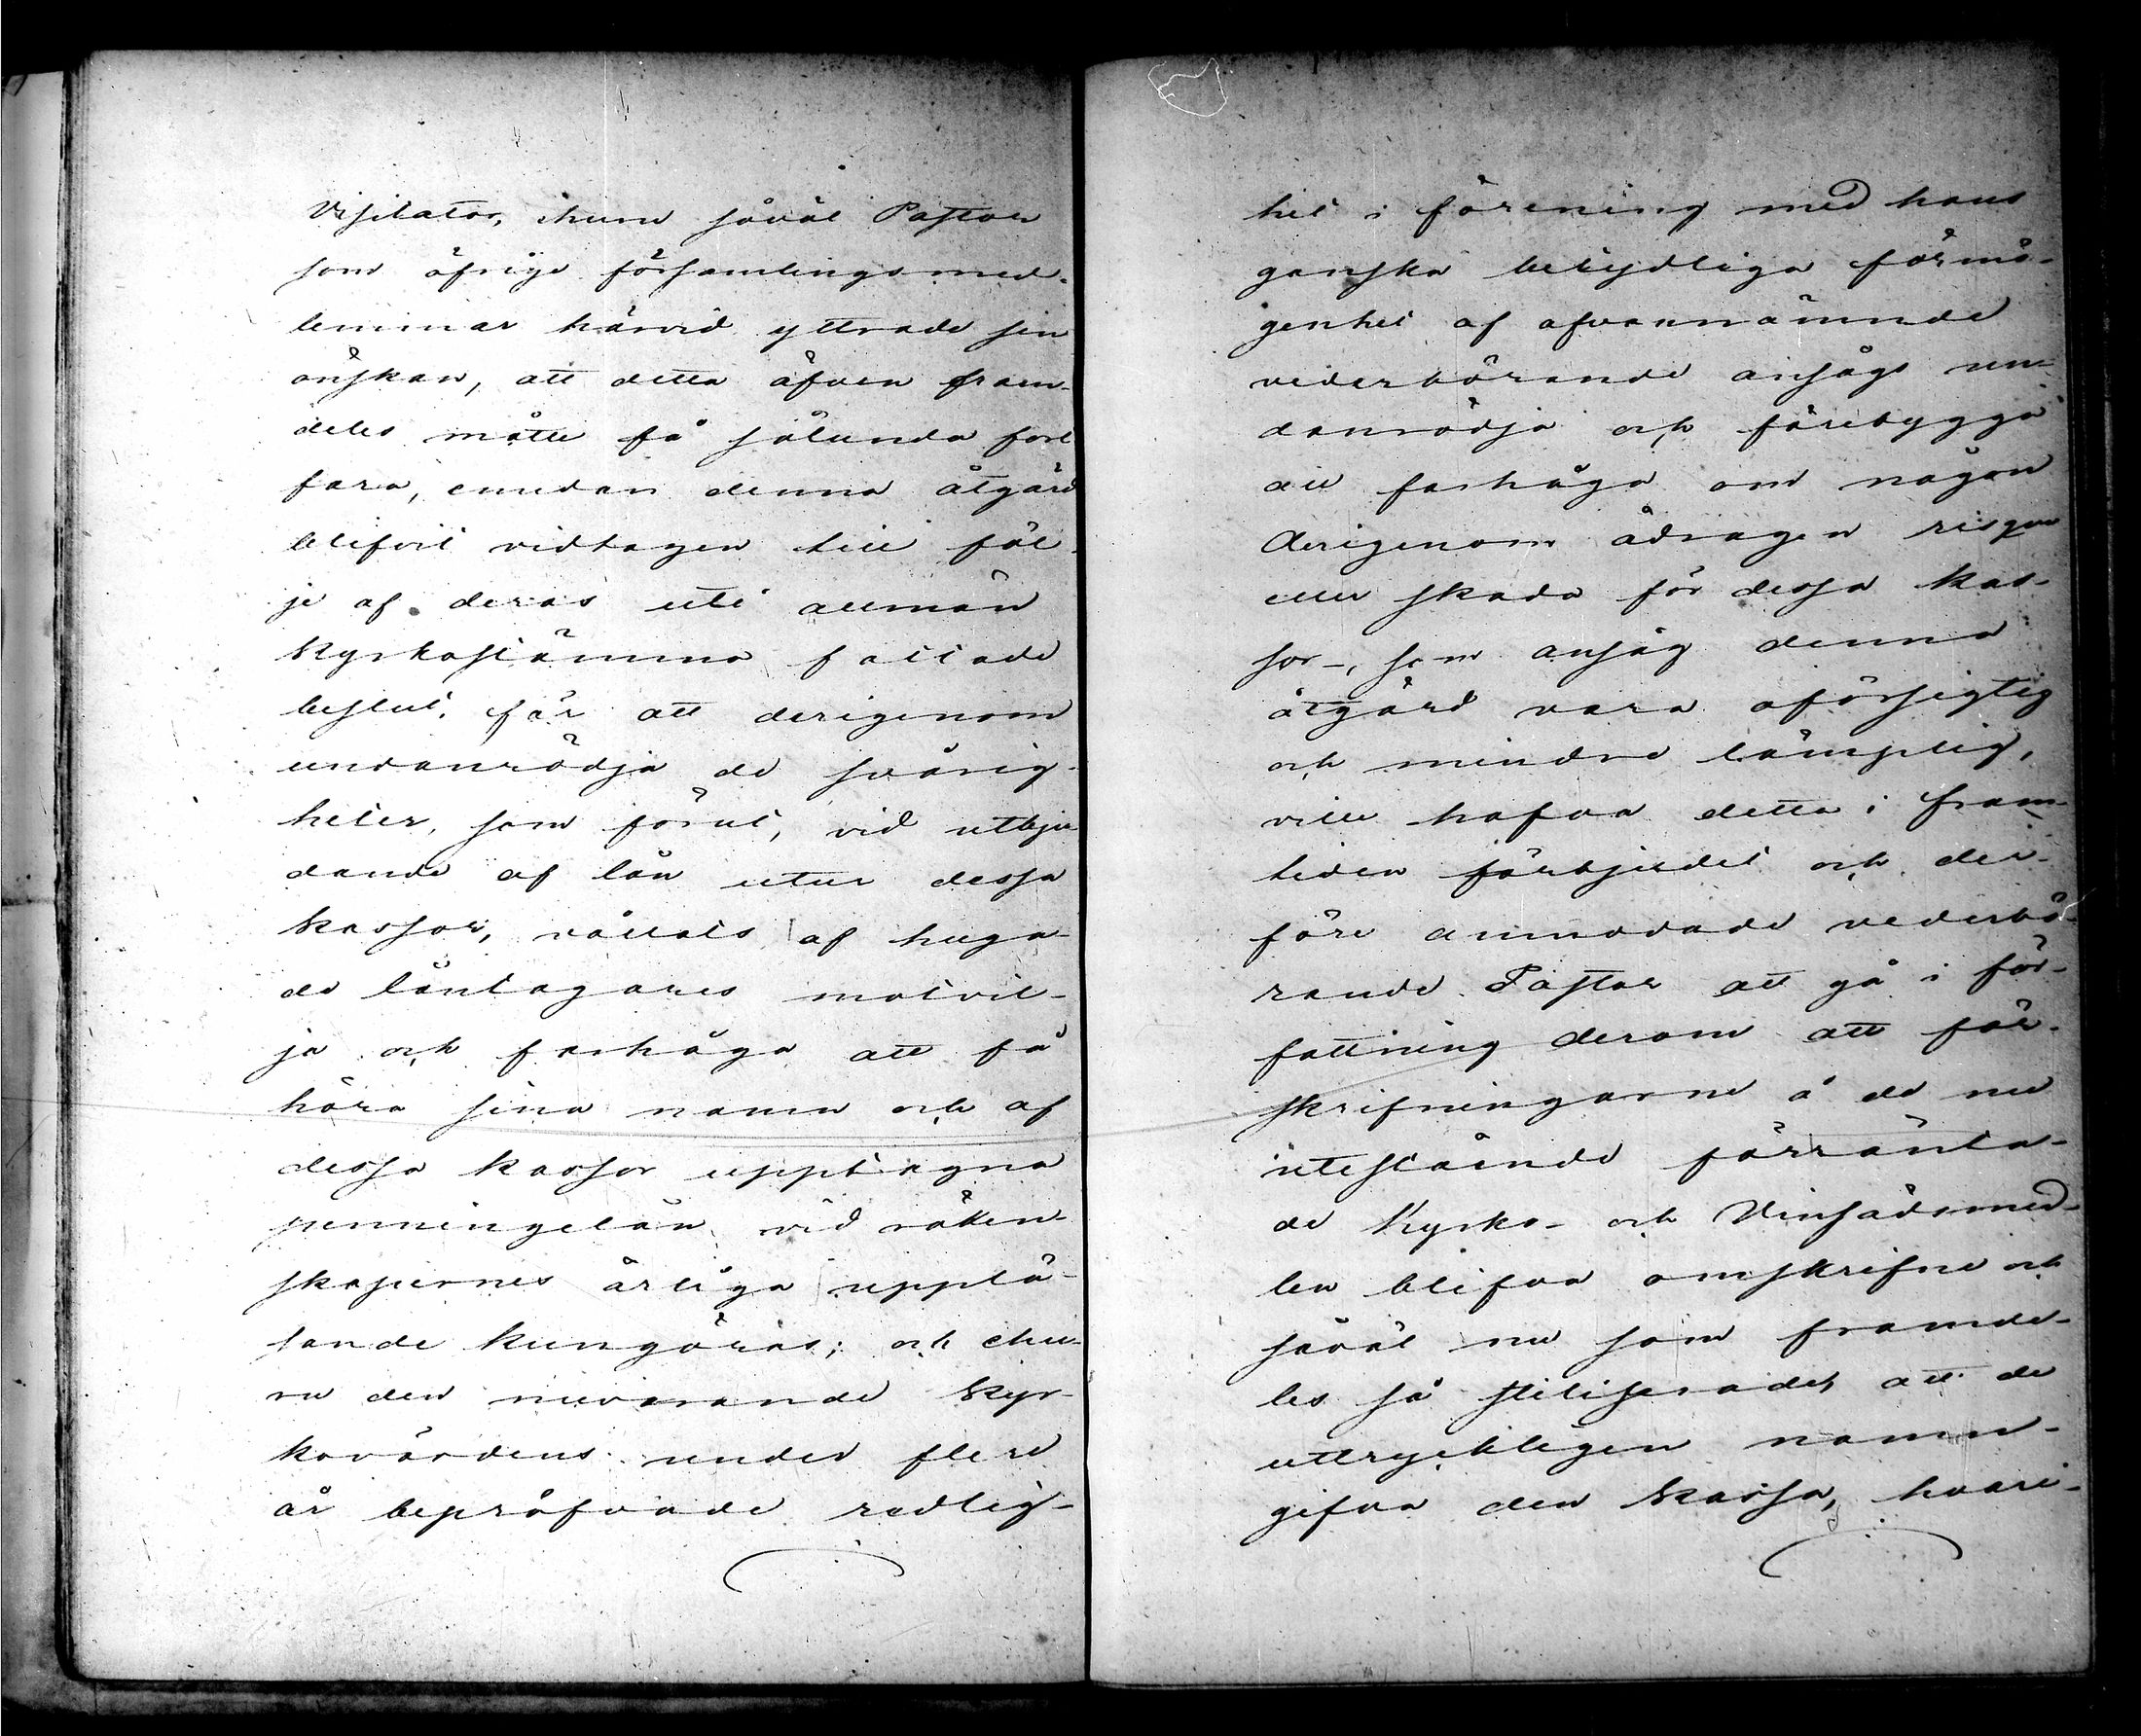 Visitator, ehuru såväl Pastor
som öfrige församlingsmed-
lemmar härvid yttrade sin
önskan, att detta äfven fram-
deles måtte få sålunda fort
fara, emedan denna åtgärd
blifvit vidtagen till föl-
je af deras uti allmän
Kyrkostämma fattade
beslut, för att derigenom
undanrödja de svårig-
heter, som förut, vid utbju-
dande af lån utur dessa
Kassor, vållats af huga-
de låntagares motvil-
ja och farhåga att få
höra sina namn och af
dessa kassor upptagna
penningelån vid räken-
skapernes årliga upplä-
sande kungöras; och ehu-
ru den nuvarande Kyr-
kovärdens under flere
år bepröfvade redlig-
het i förening med hans
ganska betydliga förmö-
genhet af ofvannämnde
vederbörande ansågs un-
danrödja och förebygga
all farhåga om någon
derigenom ådragen risque
eller skada för dessa Kas-
sor, som ansåg denna
åtgärd vara oförsigtig
och mindre lämplig,
ville hafva detta i fram-
tiden förbjudet och der-
före anmodade vederbö-
rande Pastor att gå i för-
fattning derom att för-
skrifningarne å de nu
utestående förränta-
de Kyrko- och Vinsädsmed-
len blifva omskrifne och
såväl nu som framde-
les så stiliserade, att de
uttryckligen namn-
gifva den Kassa, hvari-